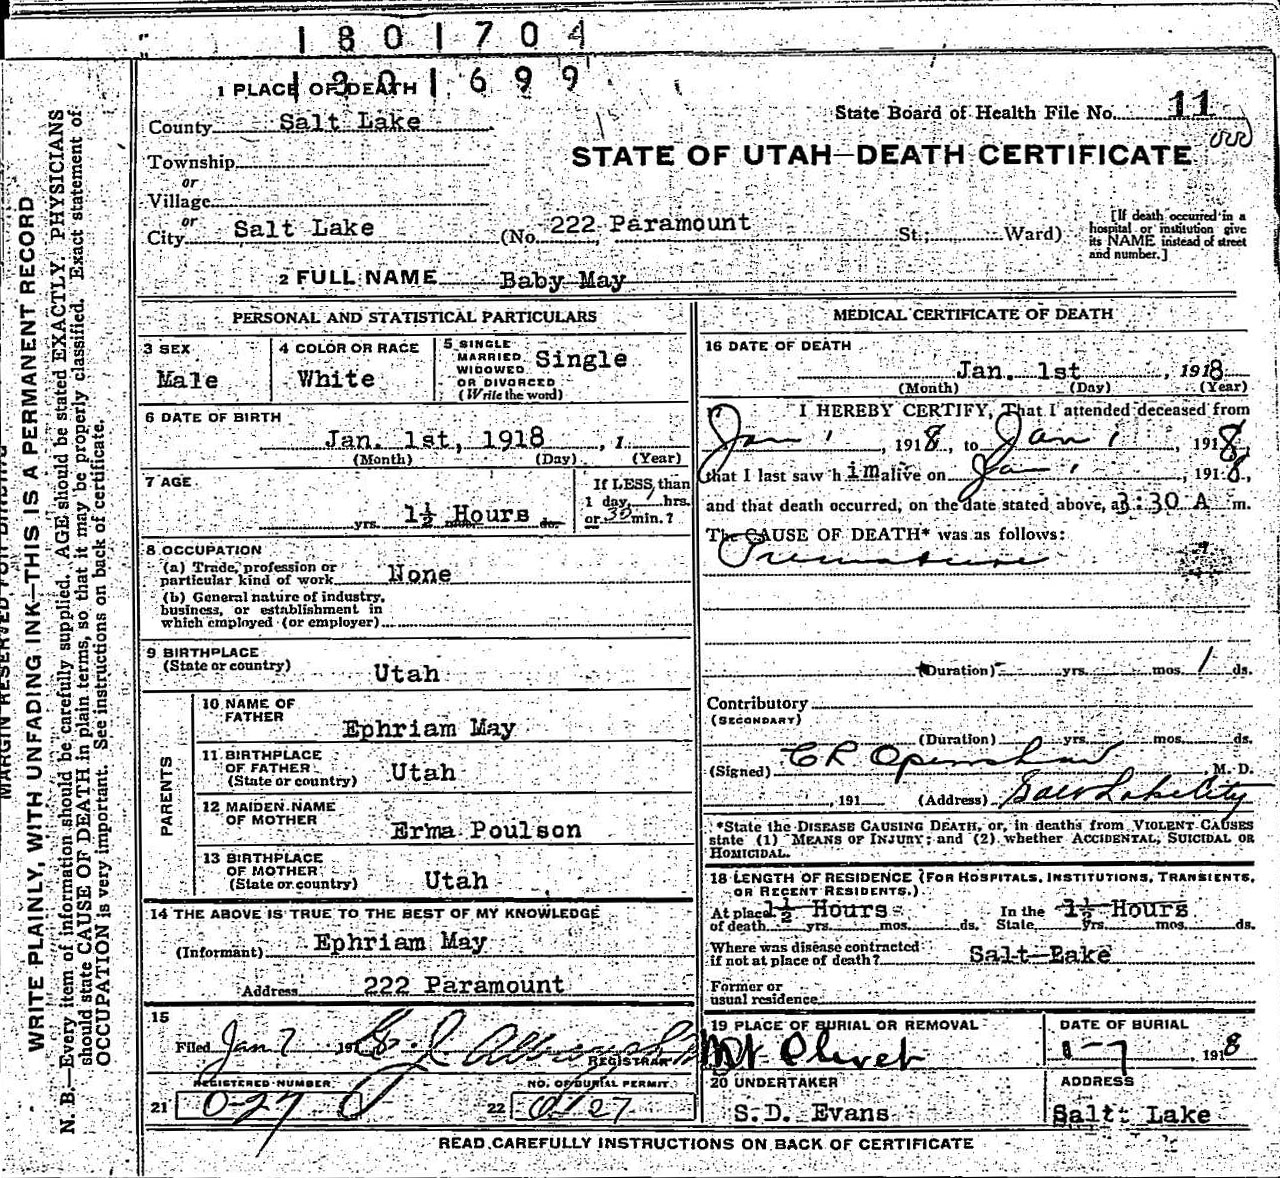 1801704
1801699
1 PLACE OF DEATH
County Salt Lake
State Board of Health File No. 11
STATE OF UTAH—DEATH CERTIFICATE
Township
or
Village
or
City Salt Lake (No. 222 Paramount St.; Ward)
[If death occurred in a hospital or institution give its NAME instead of street and number.]
2 FULL NAME Baby May
PERSONAL AND STATISTICAL PARTICULARS
3 SEX
Male
4 COLOR OR RACE
White
5 SINGLE
MARRIED
WIDOWED
OR DIVORCED
(Write the word)
Single
6 DATE OF BIRTH
Jan. 1st, 1918 , 1
(Month) (Day) (Year)
7 AGE
yrs. 1½ Hours mos. ds.
If LESS than
1 day, 1 hrs.
or 30 min.?
8 OCCUPATION
(a) Trade, profession or
particular kind of work None
(b) General nature of industry,
business, or establishment in
which employed (or employer)
9 BIRTHPLACE
(State or country)
Utah
PARENTS
10 NAME OF
FATHER
Ephriam May
11 BIRTHPLACE
OF FATHER
(State or country)
Utah
12 MAIDEN NAME
OF MOTHER
Erma Poulson
13 BIRTHPLACE
OF MOTHER
(State or country)
Utah
14 THE ABOVE IS TRUE TO THE BEST OF MY KNOWLEDGE
(Informant) Ephriam May
Address 222 Paramount
15
Filed Jan 7 191
REGISTRAR
REGISTERED NUMBER
21 0-27
NO. OF BURIAL PERMIT
22 0127
MEDICAL CERTIFICATE OF DEATH
16 DATE OF DEATH
Jan. 1st , 1918
(Month) (Day) (Year)
17 I HEREBY CERTIFY, That I attended deceased from
Jan 1 , 1918, to Jan 1 , 1918,
that I last saw him alive on Jan 1 , 1918,
and that death occurred, on the date stated above, at 3:30 A m.
The CAUSE OF DEATH* was as follows:
Premature
(Duration) yrs. mos. 1 ds.
Contributory
(SECONDARY)
(Duration) yrs. mos. ds.
(Signed) C R Openshaw M. D.
, 191 (Address) Salt Lake City
*State the DISEASE CAUSING DEATH, or, in deaths from VIOLENT CAUSES
state (1) MEANS OF INJURY; and (2) whether ACCIDENTAL, SUICIDAL OR
HOMICIDAL.
18 LENGTH OF RESIDENCE (FOR HOSPITALS, INSTITUTIONS, TRANSIENTS,
OR RECENT RESIDENTS.)
At place 1½ Hours In the 1½ Hours
of death yrs. mos. ds. State yrs. mos. ds.
Where was disease contracted
if not at place of death? Salt Lake
Former or
usual residence
19 PLACE OF BURIAL OR REMOVAL
Mt Olivet
DATE OF BURIAL
1-7 , 1918
20 UNDERTAKER
S.D. Evans
ADDRESS
Salt Lake
READ CAREFULLY INSTRUCTIONS ON BACK OF CERTIFICATE
MARGIN RESERVED FOR BINDING
WRITE PLAINLY, WITH UNFADING INK—THIS IS A PERMANENT RECORD
N. B.—Every item of information should be carefully supplied. AGE should be stated EXACTLY. PHYSICIANS
should state CAUSE OF DEATH in plain terms, so that it may be properly classified. Exact statement of
OCCUPATION is very important. See instructions on back of certificate.